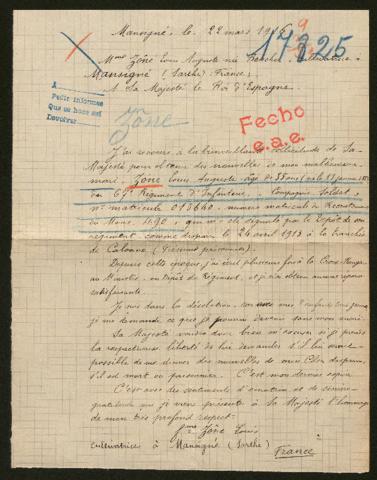 Mansigné, le 22 mars 1916
9
17325
Mme Zône Louis Auguste née, cultivatrice
Mansigné (Sarthe) France;
A Sa Majesté le Roi d'Espagne.
A
Pedir informes
Que se hace así
Devolver
Zône
Fecho
e.a.e.
J'ai recours à la bienveillante sollicitude de Sa
Majesté pour obtenir des nouvelles de mon malheureux
mari, Zône Louis Auguste, âgé de 35 ans
du 67e Régiment d'Infanterie, Compagnie, Soldat,
no matricule 013640, numéro matricule de Recrutement
du Mans 1190, qui m'a été signalé par le Dépôt de son
régiment comme disparu le 24 avril 1915 à la tranchée
de Calonne (Présumé prisonnier).
Depuis cette époque, j'ai écrit plusieurs fois à la Croix-Rouge,
au Ministre, au Dépôt du Régiment, et je n'ai obtenu aucune réponse
satisfaisante.
Je suis dans la désolation, car avec mes enfants
je me demande ce que je pourrai devenir sans mon mari.
Sa Majesté voudra bien m'excuser si je prends
la respectueuse liberté de lui demander s'il lui serait
possible de me donner des nouvelles de mon cher disparu,
s'il est mort ou prisonnier. C'est mon dernier espoir.
C'est avec des sentiments d'émotion et de sincère
gratitude que je viens présenter à Sa Majesté l'hommage
de mon très profond respect.
Zône Louis
cultivatrice à Mansigné (Sarthe)
France